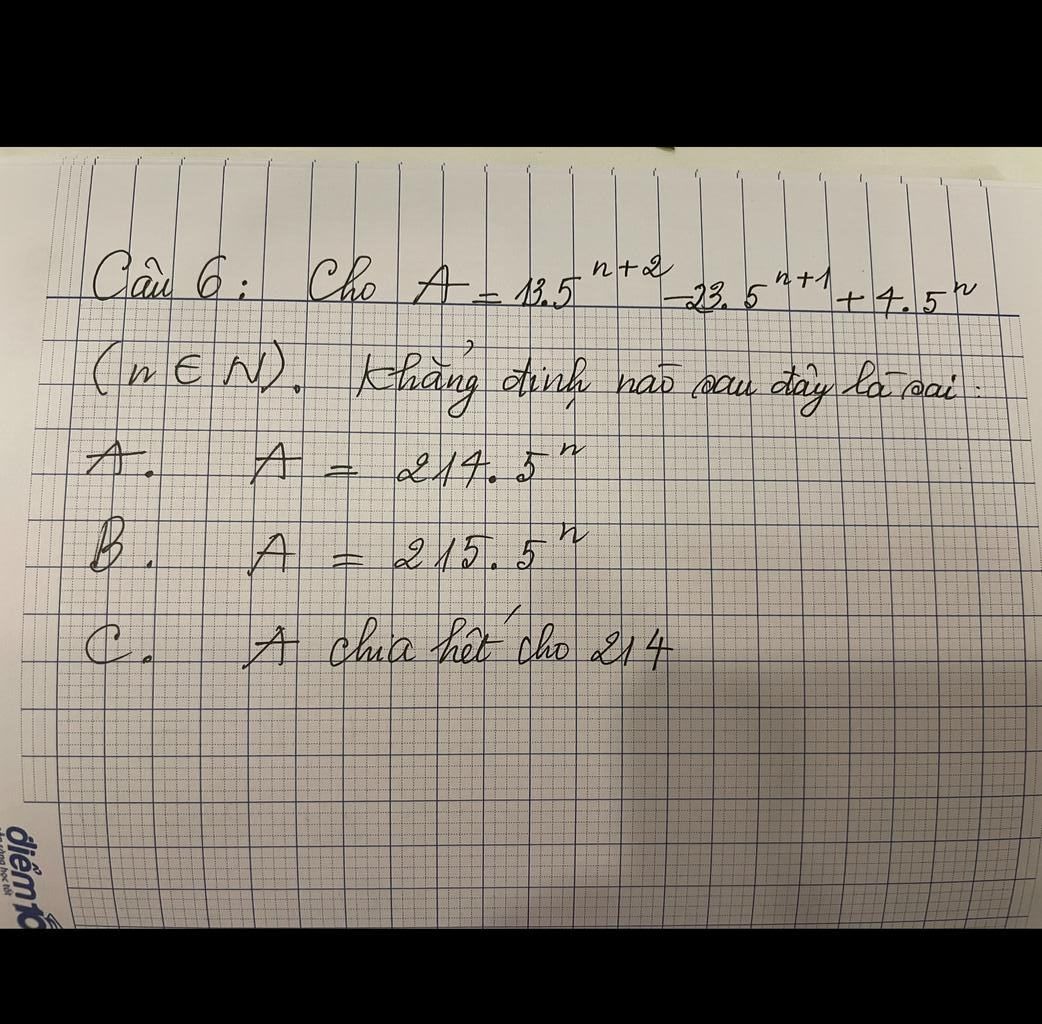 Câu 6: Cho A = 13.5^{n+2} - 23.5^{n+1} + 4.5^n
(n ∈ N). Khẳng định nào sau đây là sai:
A. A = 214.5^n
B. A = 215.5^n
C. A chia hết cho 214
điểm 10